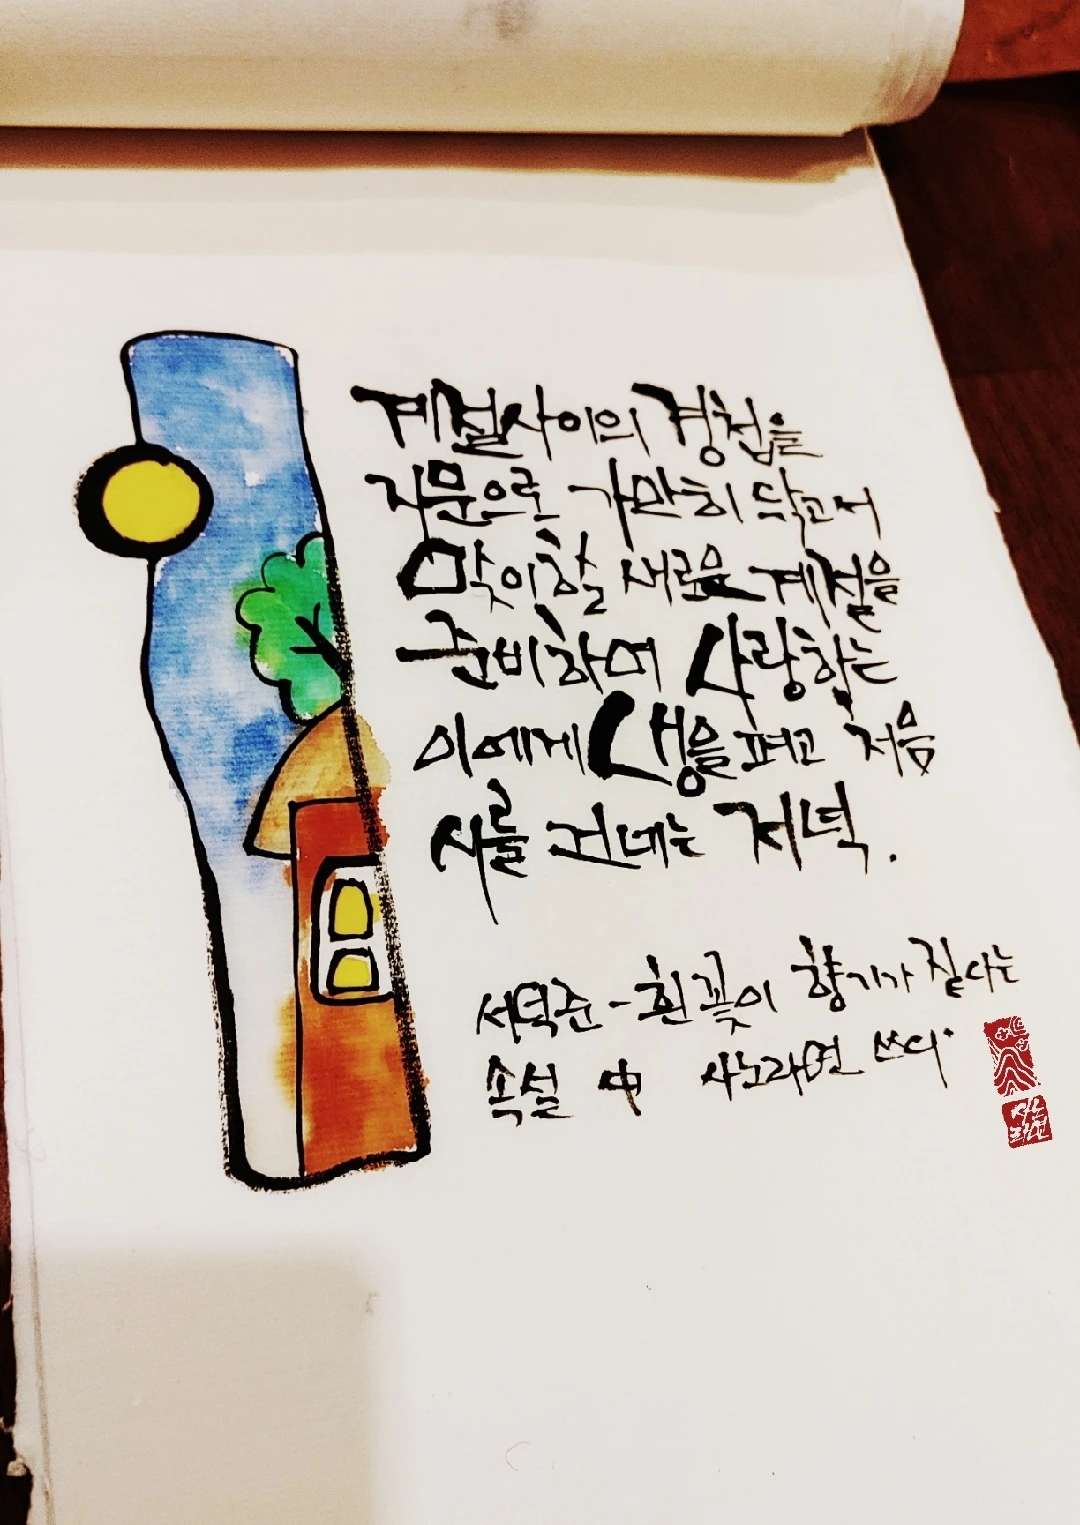 계절사이의 경첩을
지문으로 가만히 닦고서
맞이할 새로운 계절을
준비하며 사랑하는
이에게 생을 펴고 처음
시를 건네는 저녁.
서덕준 - 흰 꽃이 향기가 짙다는
속설 中 사노라면 쓰다
사노라면